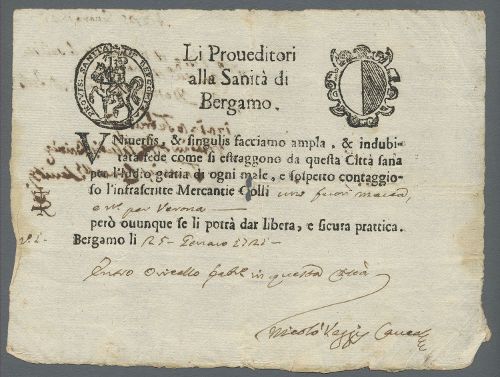 Li Proueditori
alla Sanità di
Bergamo.
VNiuersis, & singulis facciamo ampla, & indubi-
tata fede come si estraggono da questa Città sana
per l'Iddio gratia di ogni male, e sospetto contaggio-
so l'infrascritte Mercantie Colli uno fuori
per Verona
però ouunque se li potrà dar libera, e sicura prattica.
Bergamo li 25 Genaro
in questa Città
Nicolò